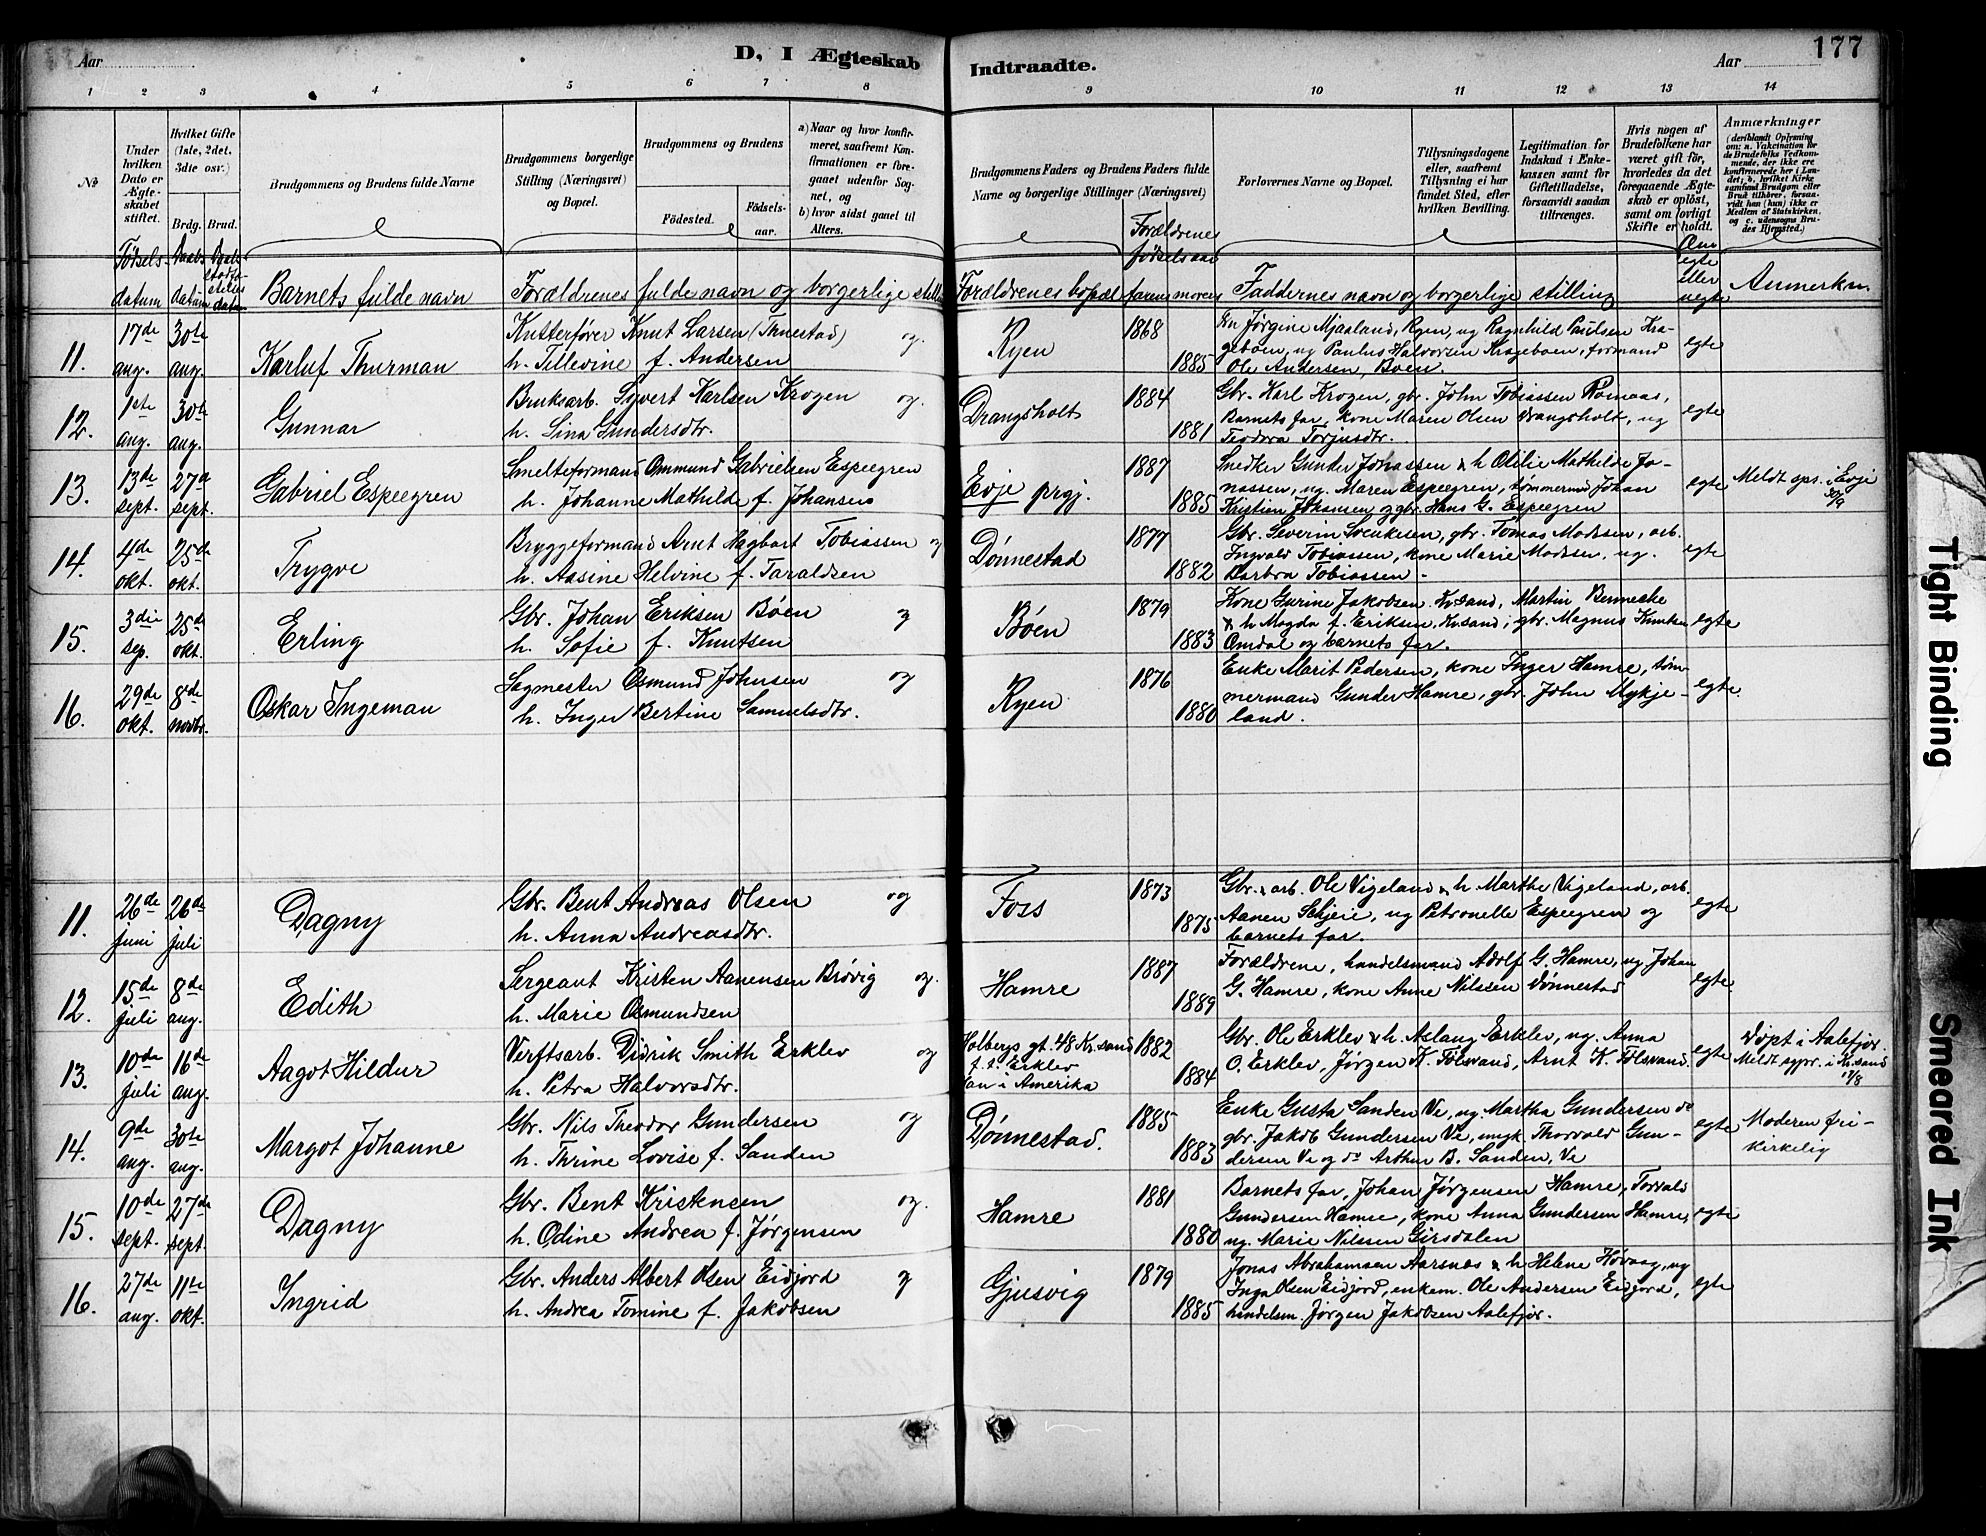 Aar
D, I Ægteskab
Indtraadte.
Aar
177
1 2 3 4 5 6 7 8 9 10 11 12 13 14
No
Under hvilken Dato er Ægteskabet stiftet.
Hvilket Gifte (1ste, 2det, 3die osv.)
Brdg. Brud.
Brudgommens og Brudens fulde Navne
Brudgommens borgerlige Stilling (Næringsvei) og Bopæl.
Brudgommens og Brudens
Födested. Födselsaar.
a) Naar og hvor konfirmeret, saafremt Konfirmationen er foregaaet udenfor Sognet, og
b) hvor sidst gaaet til Alters.
Brudgommens Faders og Brudens Faders fulde Navne og borgerlige Stillinger (Næringsvei)
Forlovernes Navne og Bopæl.
Tillysningsdagene eller, saafremt Tillysning ei har fundet Sted, efter hvilken Bevilling.
Legitimation for Indskud i Enkekassen samt for Giftetilladelse, forsaavidt saadan tiltrænges.
Hvis nogen af Brudefolkene har været gift för, hvorledes da det foregaaende Ægteskab er oplöst, samt om lovligt Skifte er holdt.
Anmærkninger
(deriblandt Oplysning om: a. Vakcination for de Brudefolks Vedkommende, der ikke ere konfirmerede her i Landet; b. hvilket Kirke Brudgom eller Brud tilhörer, forsaavidt han (hun) ikke er Medlem af Statskirken, og c. udensogns Brudes Hjemsted.)
Fødselsdatum
Daabsdatum
Daabs stadfæstelses datum
Barnets fulde navn
Forældrenes fulde navn og borgerlige stilling
Forældrenes bopæl
Forældrenes fødselsaar
farens morens
Faddernes navn og borgerlige stilling
Om egte eller uegte
Anmerkn.
11. 17de aug. 30te aug. Karluf Thurman
Kutterfører Knut Larsen (Tunestad) og
h. Tillevine f. Andersen
Ryen 1868 1885
Gn Jørgine Mjaaland, Ryen, ug Ragnhild Paulsen Kra-
geboen, ug Paulus Halvorsen Krageboen, formand
Ole Andersen, Boen.
egte
12. 1ste aug. 30te aug. Gunnar
Bruksarb. Syvert Karlsen Krogen og.
h. Sina Gundersdtr.
Drangsholt 1884 1881
Gbr. Karl Krogen, gbr. John Tobiassen Romaas,
Barnets far, kone Maren Olsen Drangsholt, ug
Teodora Torjusdtr.
egte
13. 13de sept. 27de sept. Gabriel Espegren
Smelteformand Ommund Gabrielsen Espegren
h. Johanne Mathilde f. Johansen
Evje prgj. 1887 1885
Snedker Gunder Jonassen & h Otilie Mathilde Jo-
nassen, ug. Maren Espegren, tømmermnd Johan
Kristian Johansen og gbr. Hans G. Espegren
egte
Meldt sps. i Evje 30/9
14. 4de okt. 25de okt. Trygve
Bryggeformand Arnt Hagbart Tobiassen og
h. Aasine Helvine f. Taraldsen
Dønnestad 1877 1882
Gbr. Severin Svenksen, gbr. Tomas Madsen, arb.
Ingvald Tobiassen, kone Marie Madsen, ug.
Barbra Tobiassen.
egte
15. 3die sep. 25de okt. Erling
Gbr. Johan Eriksen Bøen og
h. Sofie f. Knutsen
Bøen 1879 1883
Kone Gurine Jakobsen Kr.sand, Martin Benneche
& h Magda f. Eriksen, Kr.sand, gbr. Magnus Knutsen
Omdal og barnets far.
egte
16. 29de okt. 8de novbr. Oskar Ingeman
Sagmester Osmund Johnsen og
h. Inger Bertine Samuelsdtr.
Ryen 1876 1880
Enke Marit Pedersen, kone Inger Hamre, tøm-
mermand Gunder Hamre, gbr. John Mykje-
land.
egte
11. 26de juni 26de juli Dagny
Gbr. Bent Andreas Olsen og
h. Anna Andreasdtr.
Foss 1873 1875
Gbr. & arb. Ole Vigeland & h Marthe Vigeland, arb.
Aanen Skjeie, ug Petronelle Espegren og
barnets far.
egte
12. 15de juli 8de aug. Edith
Sergeant Kristen Aanensen Brøvig og.
h. Marie Osmundsen
Hamre 1887 1889
Forældrene, handelsmand Adolf G. Hamre, ug Johan
G. Hamre, kone Anne Nilssen Dønnestad
egte.
13. 10de juli 16de aug. Aagot Hildur
Verftsarb. Didrik Smith Erklev og
h. Petra Halvorsdtr.
Holbergs gt. 48 Kr.sand
f. t. Erklev
Han i Amerika 1882 1884
Gbr. Ole Erklev & h. Aslaug Erklev, ug. Anna
O. Erklev, Jørgen K. Følsvand, Arnt K. Følsvand.
egte
Døpt i Aalefjær.
Meldt sypr. i Kr.sand 17/8
14. 9de aug. 30te aug. Margot Johanne
Gbr. Nils Theodor Gundersen og
h. Thrine Lovise f. Sanden
Dønnestad. 1885 1883
Enke Gusta Sanden Ve, ug. Martha Gundersen do
gbr. Jakob Gundersen Ve, ungk. Thorvald Gun-
dersen Ve og do Arthur B. Sanden, Ve
egte
Moderen fri-
kirkelig
15. 10de sept. 27de sept. Dagny
Gbr. Bent Kristensen og.
h. Odine Andrea f. Jørgensen
Hamre 1881 1880
Barnets far, Johan Jørgensen Hamre, Torvald
Gundersen Hamre, kone Anna Gundersen Hamre,
ug. Marie Nilssen Girsdalen
egte
16. 27de aug. 11te okt. Ingrid
Gbr. Anders Albert Olsen Eidjord og
h. Andrea Tomine f. Jakobsen
Gjusvig 1879 1885
Jonas Abrahamsen Aarsnes & h Helene Høvaag, ug
Inga Olsen Eidjord, enkem. Ole Andersen Eidjord,
handelsm. Jørgen Jakobsen Aalefjær.
egte
Tight Binding
Smeared Ink